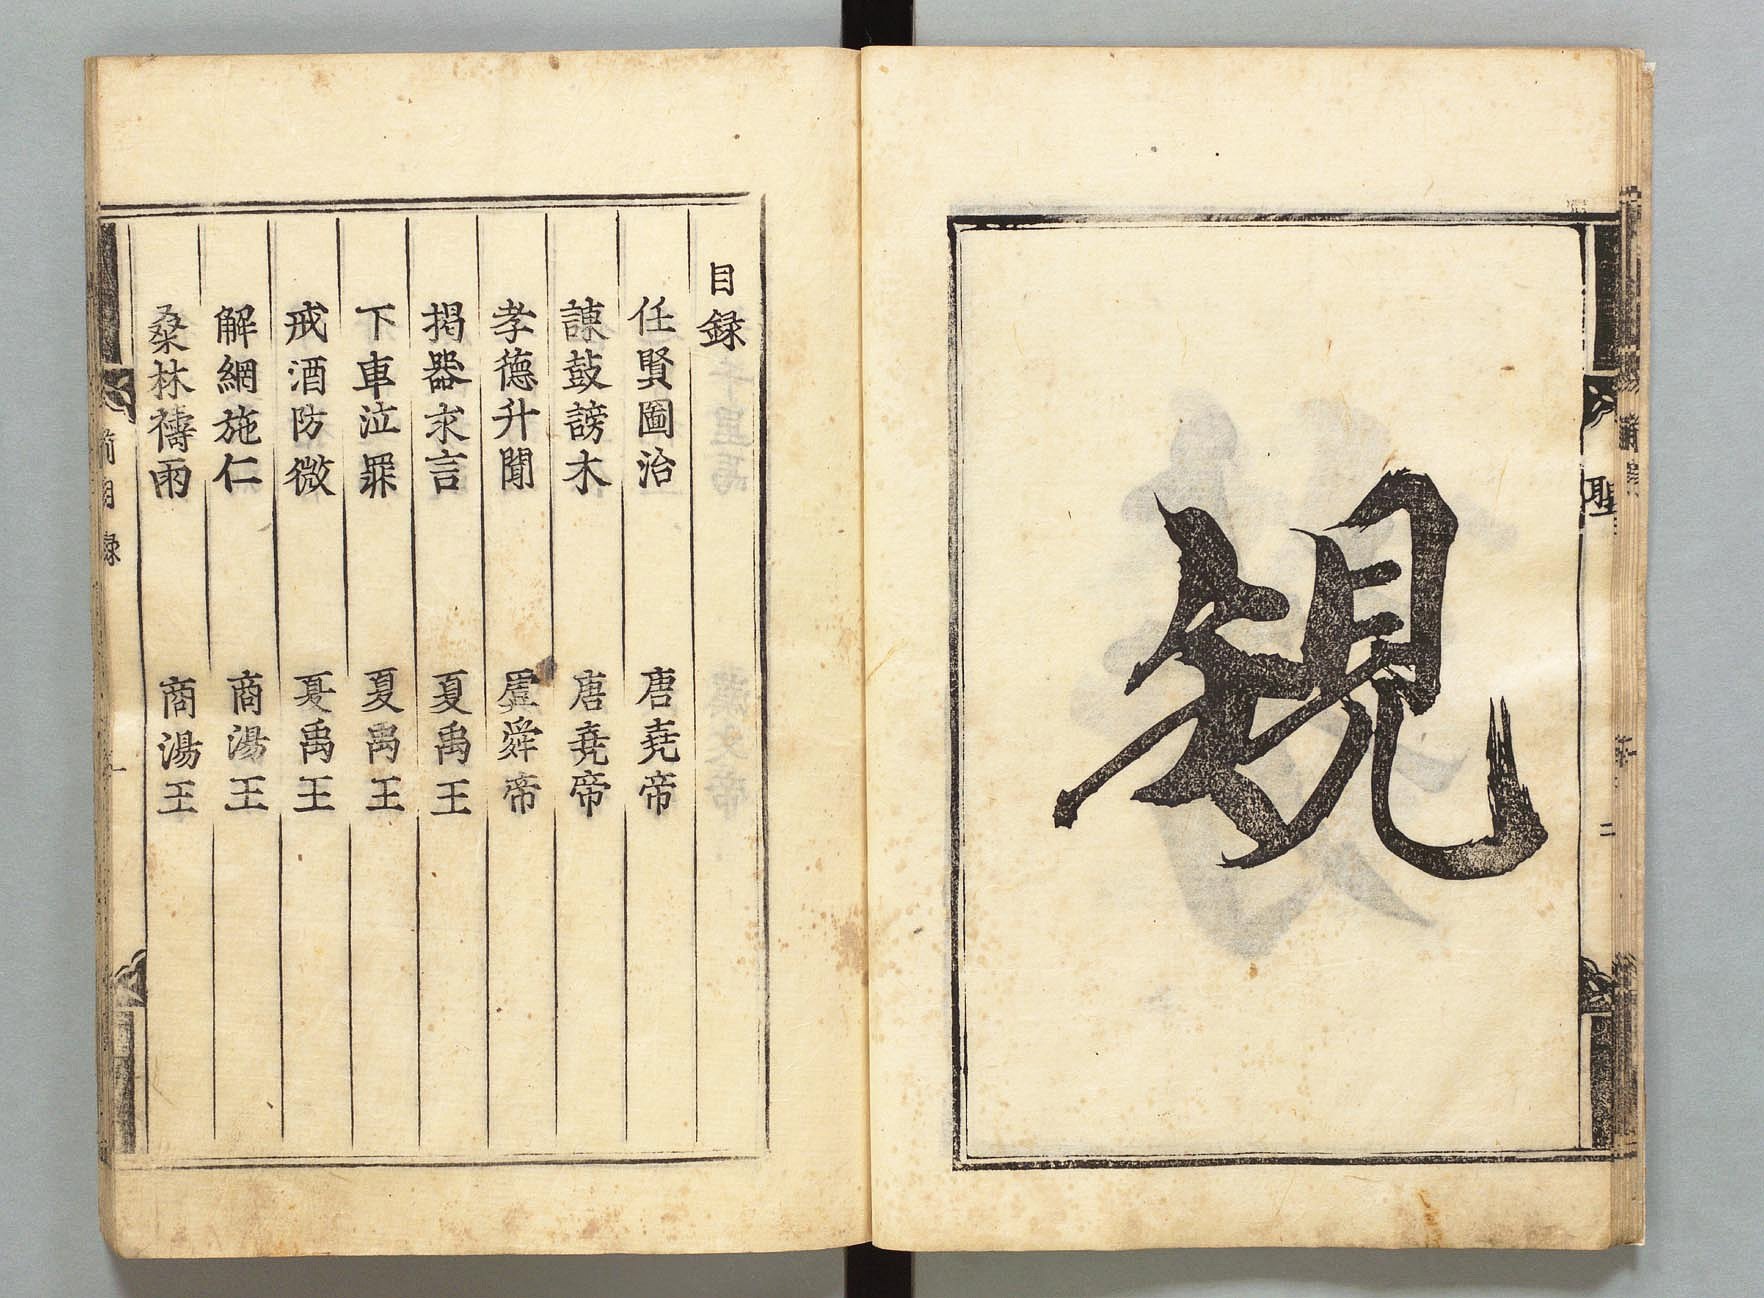 規
聖
二
目録
任賢圖治 唐堯帝
諌鼓謗木 唐堯帝
孝德升聞 虞舜帝
揭器求言 夏禹王
下車泣罪 夏禹王
戒酒防微 夏禹王
解網施仁 商湯王
桑林禱雨 商湯王